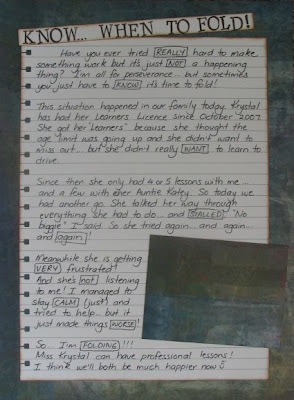 KNOW... WHEN TO FOLD!
Have you ever tried REALLY hard to make
something work but it's just NOT a happening
thing? I'm all for perseverance... but sometimes
you just have to KNOW it's time to fold!
This situation happened in our family today. Krystal
has had her Learners Licence since October 2007.
She got her Learners because she thought the
age limit was going up and she didn't want to
miss out... but she didn't really WANT to learn to
drive.
Since then she only had 4 or 5 lessons with me...
and a few with her Auntie Katey. So today we
had another go. She talked her way through
everything she had to do... and STALLED! "No
biggie" I said. So she tried again... and again...
and again!
Meanwhile she is getting
VERY frustrated!
And she's not listening
to me! I managed to
stay CALM (just) and
tried to help... but it
just made things WORSE!
So... I'm FOLDING!!!
Miss Krystal can have professional lessons!
I think we'll both be much happier now